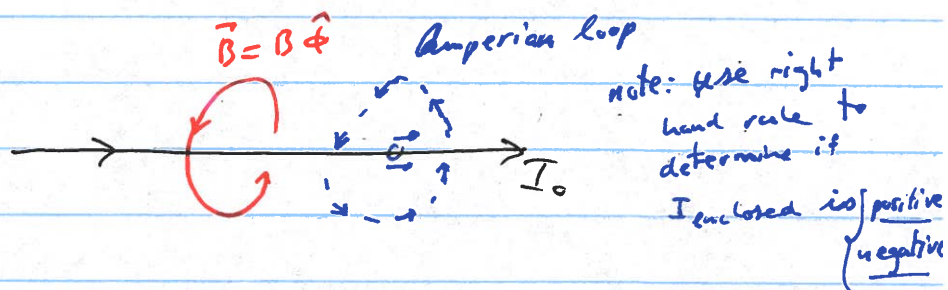 B⃗ = B ϕ̂
Amperian loop
note: use right
hand rule to
determine if
I enclosed is { positive
negative
I₀